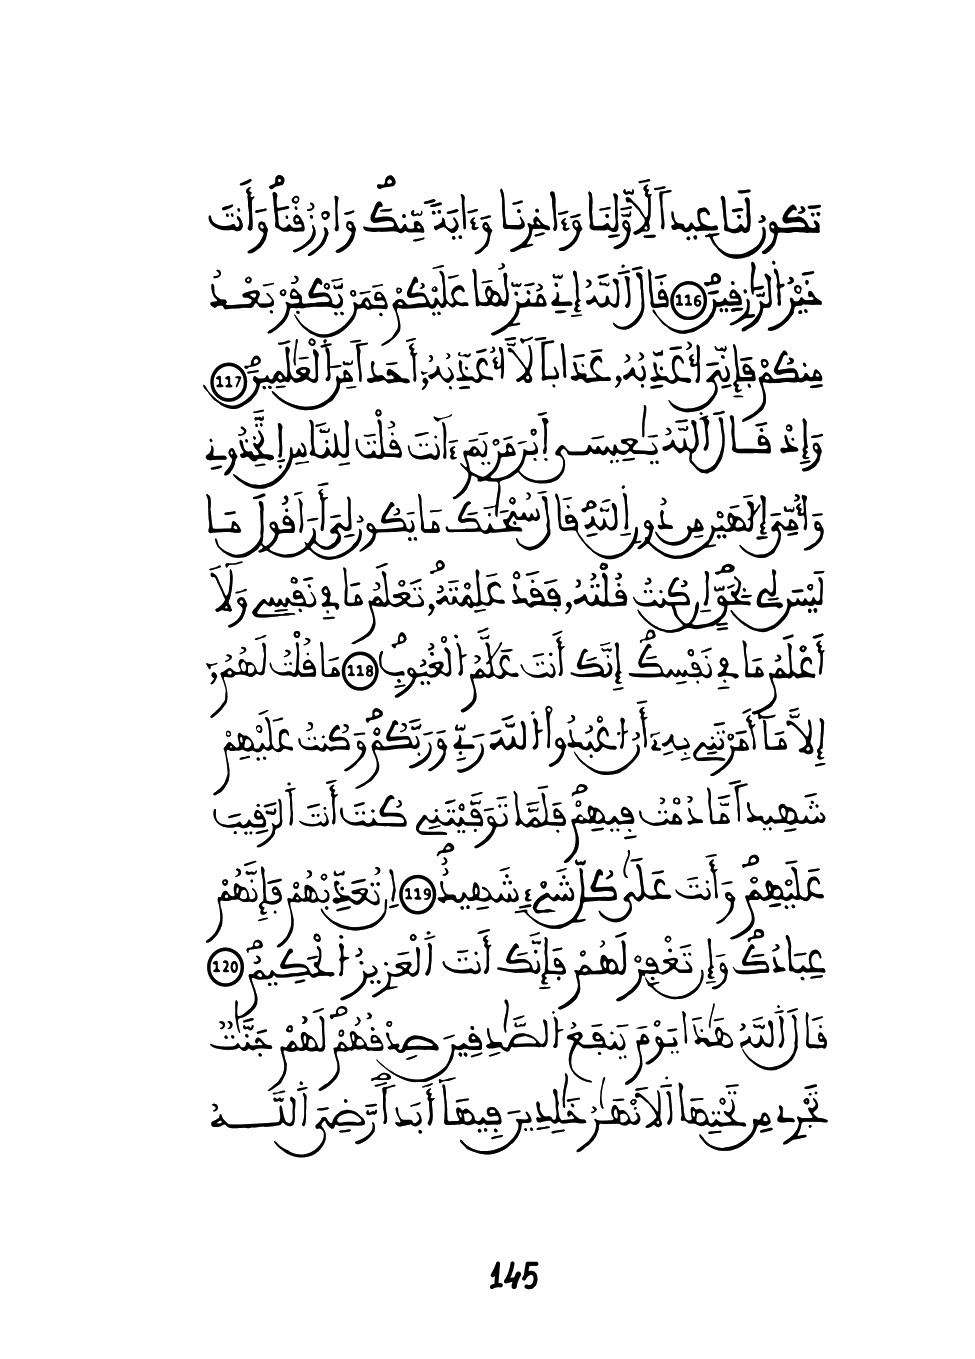 تَكُونُ لَنَا عِيداٗ لِّأَوَّلِنَا وَءَاخِرِنَا وَءَايَةٗ مِّنكَۖ وَارْزُقْنَاۖ وَأَنتَ
خَيْرُ اُلرَّٰزِقِينَۖ 116 قَالَ اَ۬للَّهُ إِنِّے مُنَزِّلُهَا عَلَيْكُمْ فَمَنْ يَّكْفُرْ بَعْدُ
مِنكُمْ فَإِنِّيَ أُعَذِّبُهُۥ عَذَاباٗ لَّآ أُعَذِّبُهُۥٓ أَحَداٗ مِّنَ اَ۬لْعَٰلَمِينَۖ 117
وَإِذْ قَالَ اَ۬للَّهُ يَٰعِيسَى اَ۪بْنَ مَرْيَمَ ءَآنتَ قُلْتَ لِلنَّاسِ اِ۪تَّخِذُونِے
وَأُمِّيَ إِلَٰهَيْنِ مِن دُونِ اِ۬للَّهِۖ قَالَ سُبْحَٰنَكَ مَا يَكُونُ لِيَ أَنَ اَقُولَ مَا
لَيْسَ لِے بِحَقٍّۖ اِن كُنتُ قُلْتُهُۥ فَقَدْ عَلِمْتَهُۥۖ تَعْلَمُ مَا فِے نَفْسِے وَلَآ
أَعْلَمُ مَا فِے نَفْسِكَۖ إِنَّكَ أَنتَ عَلَّٰمُ اُ۬لْغُيُوبِۖ 118 مَا قُلْتُ لَهُمُۥٓ
إِلَّا مَآ أَمَرْتَنِے بِهِۦٓ أَنُ اُ۟عْبُدُواْ اُ۬للَّهَ رَبِّے وَرَبَّكُمْۖ وَكُنتُ عَلَيْهِمْ
شَهِيداٗ مَّا دُمْتُ فِيهِمْۖ فَلَمَّا تَوَفَّيْتَنِے كُنتَ أَنتَ اَ۬لرَّقِيبَ
عَلَيْهِمْۖ وَأَنتَ عَلَىٰ كُلِّ شَےْءٖ شَهِيدٌۖ 119 اِن تُعَذِّبْهُمْ فَإِنَّهُمْ
عِبَادُكَۖ وَإِن تَغْفِرْ لَهُمْ فَإِنَّكَ أَنتَ اَ۬لْعَزِيزُ اُ۬لْحَكِيمُۖ 120
قَالَ اَ۬للَّهُ هَٰذَا يَوْمَ يَنفَعُ اُ۬لصَّٰدِقِينَ صِدْقُهُمْۖ لَهُمْ جَنَّٰتٞ
تَجْرِے مِن تَحْتِهَا اَ۬لَانْهَٰرُ خَٰلِدِينَ فِيهَآ أَبَداٗۖ رَّضِيَ اَ۬للَّهُ
145